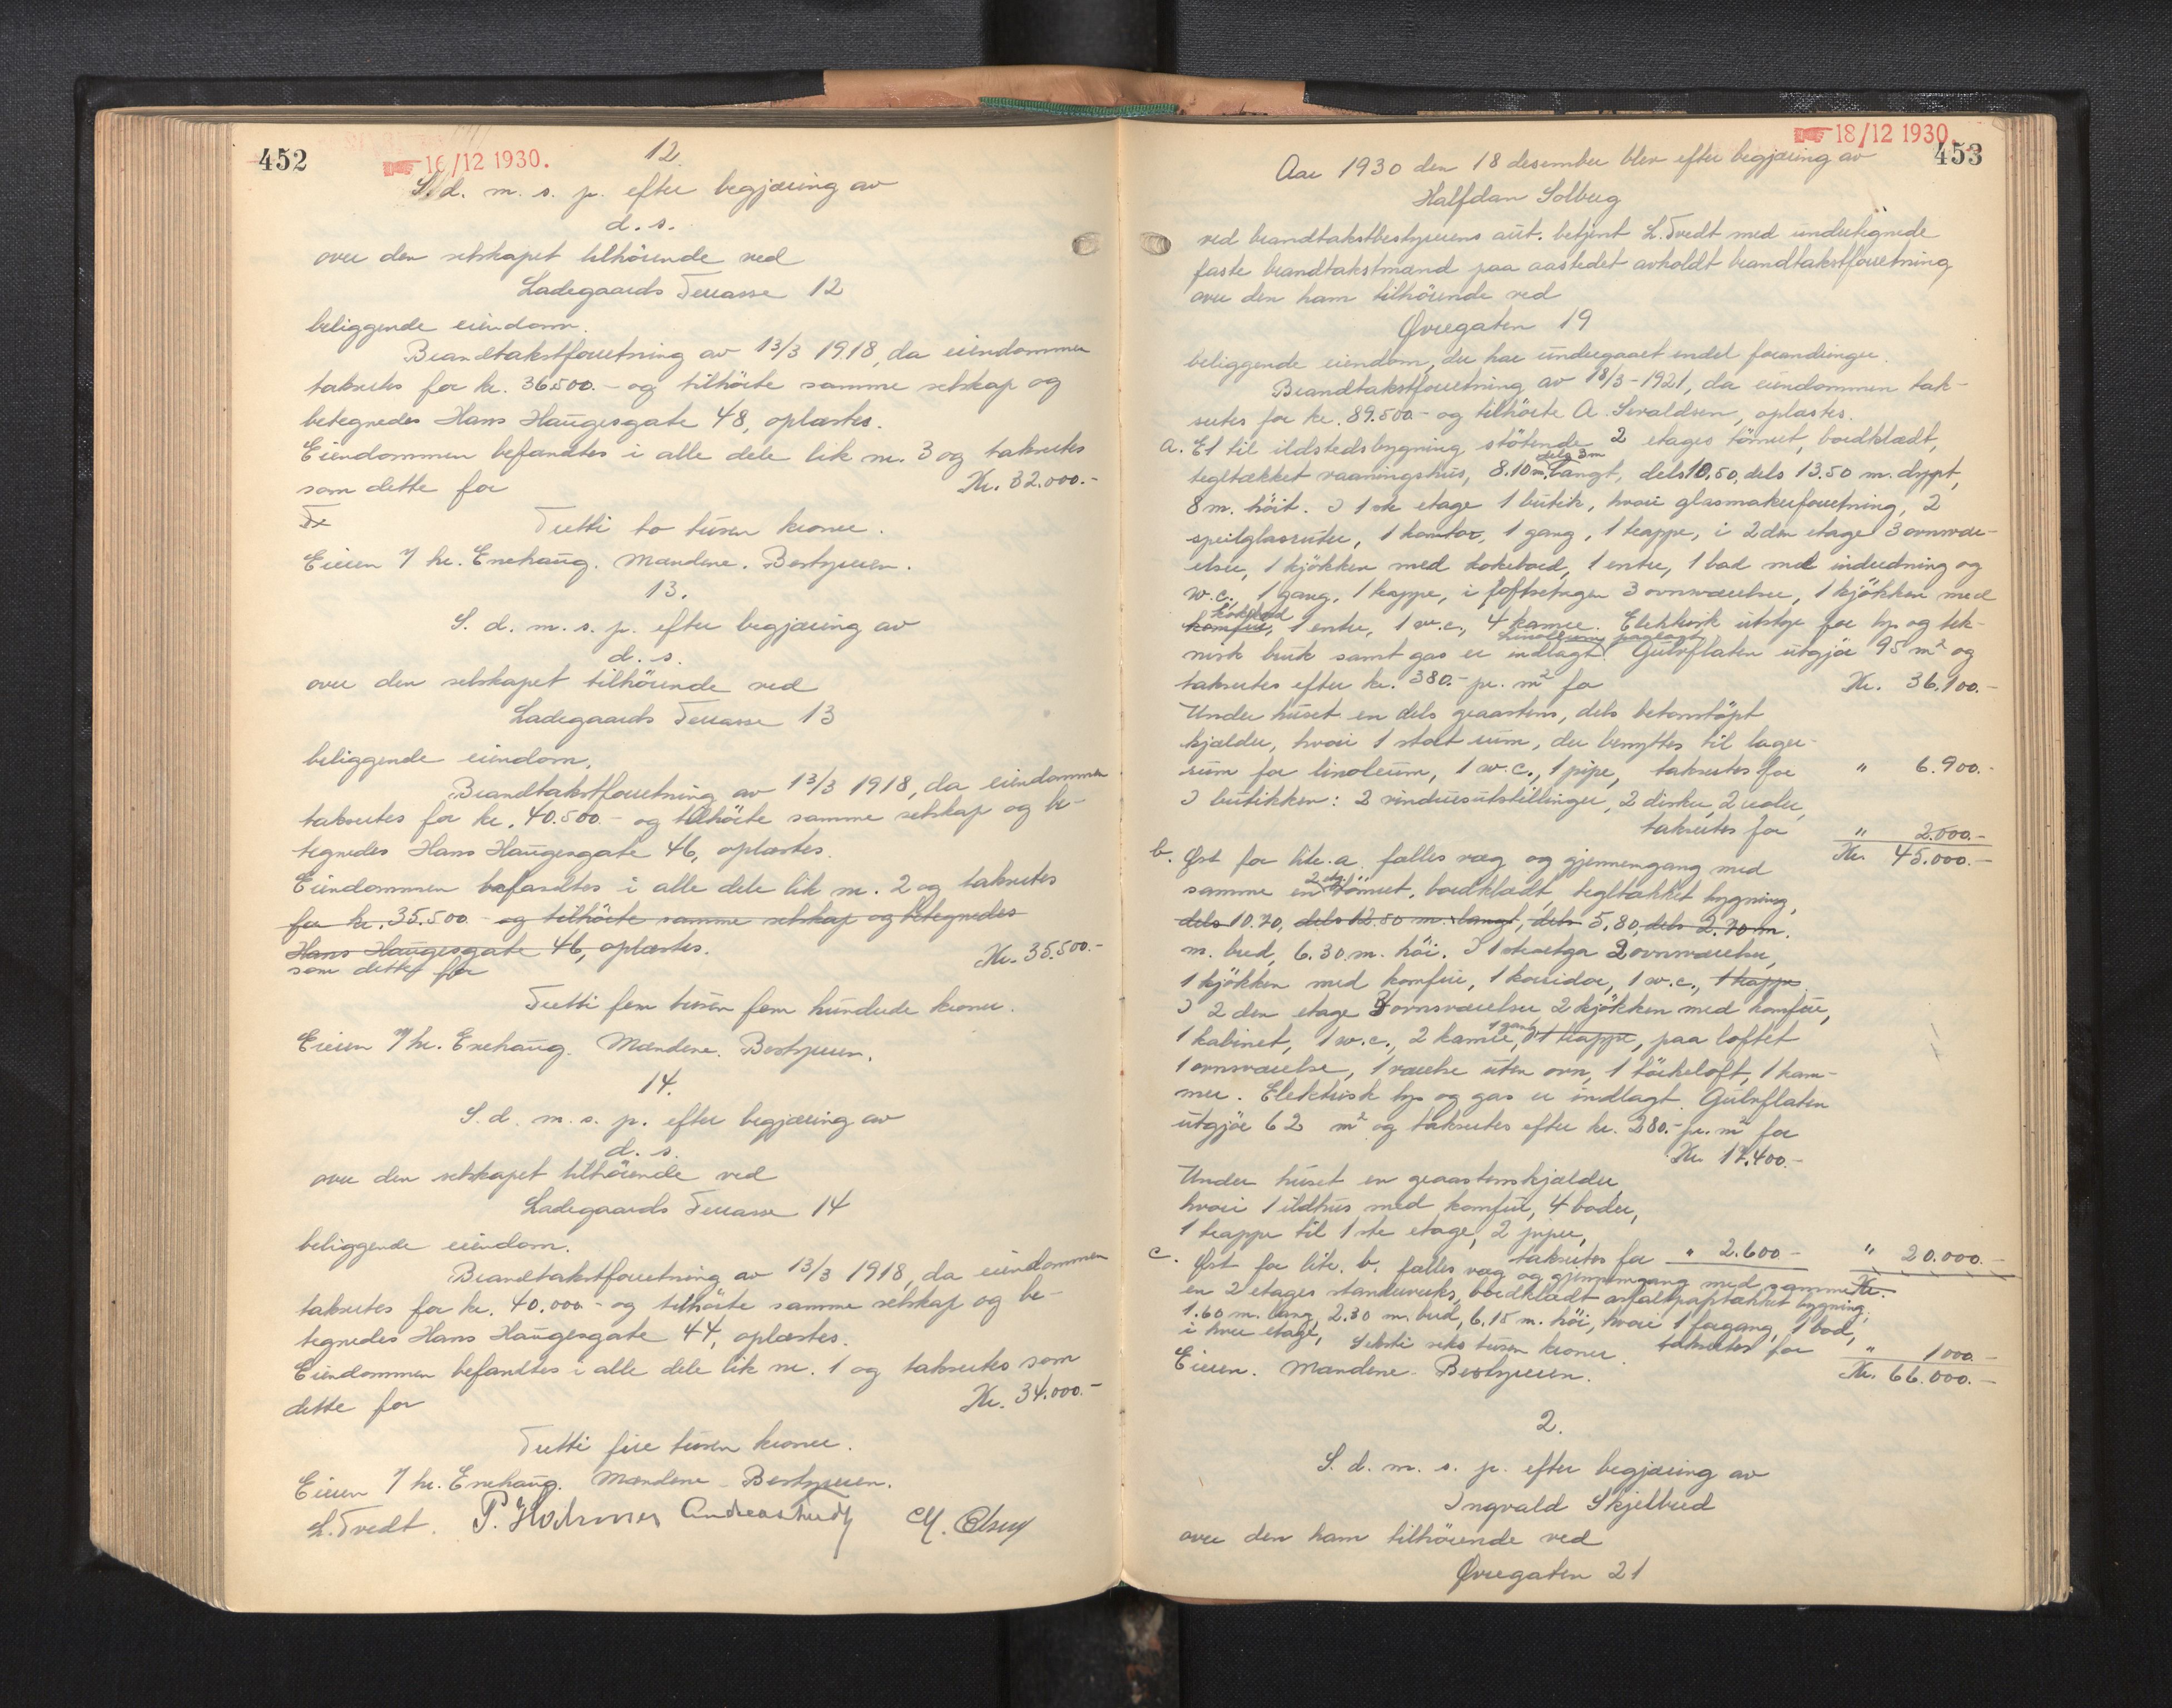 452
16/12 1930.
12.
S. d. m. s. p. efter begjæring av
d. s.
over den selskapet tilhörende ved
Ladegaards Terrasse 12
beliggende eiendom.
Brandtakstforretning av 13/3 1918, da eiendommen
taksertes for kr. 36500.- og tilhörte samme selskap og
betegnedes Hans Haugesgate 48, oplæstes.
Eiendommen befandtes i alle dele lik nr. 3 og taksertes
som dette for Kr. 32.000.-
Tr
Tretti to tusen kroner.
Eieren v/ hr. Enehaug. Mændene. Bestyreren.
13.
S. d. m. s. p. efter begjæring av
d. s.
over den selskapet tilhörende ved
Ladegaards Terrasse 13
beliggende eiendom.
Brandtakstforretning av 13/3 1918, da eiendommen
taksertes for kr. 40.500.- og tilhörte samme selskap og be-
tegnedes Hans Haugesgate 46, oplæstes.
Eiendommen befandtes i alle dele lik nr. 2 og taksertes
for kr. 35.500.- og tilhörte samme selskap og betegnedes
Hans Haugesgate 46, oplæstes.
som dette for Kr. 35.500.-
Tretti fem tusen fem hundrede kroner.
Eieren v/ hr. Enehaug. Mændene. Bestyreren.
14.
S. d. m. s. p. efter begjæring av
d. s.
over den selskapet tilhörende ved
Ladegaards Terrasse 14
beliggende eiendom.
Brandtakstforretning av 13/3 1918, da eiendommen
taksertes for kr. 40.000.- og tilhörte samme selskap og be-
tegnedes Hans Haugesgate 44, oplæstes.
Eiendommen befandtes i alle dele lik nr. 1 og taksertes som
dette for Kr. 34.000.-
Tretti fire tusen kroner.
Eieren v/ hr. Enehaug. Mændene. Bestyreren.
L. Tvedt.
18/12 1930.
453
Aar 1930 den 18 desember blev efter begjæring av
Halfdan Solberg
ved brandtakstbestyrerens aut. betjent L. Tvedt med undertegnede
faste brandtakstmænd paa aastedet avholdt brandtakstforretning
over den ham tilhörende ved
Øvregaten 19
beliggende eiendom, der har undergaaet endel forandringer.
Brandtakstforretning av 18/3-1921, da eiendommen tak-
sertes for kr. 89.500.- og tilhörte A. Sevaldsen, oplæstes.
a. Et til ildstedsbygning stötende 2 etages tömret, bordklædt,
dels 3 m
tegltækket vaaningshus, 8.10 m. langt, dels 10.50, dels 13.50 m. dypt,
8 m. höit. I 1ste etage 1 butik, hvori glasmakerforretning, 2
speilglasruter, 1 kontor, 1 gang, 1 trappe, i 2den etage 3 ovnsvæ-
relser, 1 kjökken med kokebord, 1 entre, 1 bad med indredning og
w.c., 1 gang, 1 trappe, i loftsetagen 3 ovnsværelser, 1 kjökken med
kokebord
komfur, 1 entre, 1 w.c., 4 kamre. Elektrisk utstyr for lys og tek-
Linoleum paalagt
nisk bruk samt gas er indlagt. Gulvflaten utgjör 95 m² og
taksertes efter kr. 380.- pr. m² for Kr. 36.100.-
Under huset en dels graastens, dels betonstöpt
kjælder, hvori 1 stort rum, der benyttes til lager-
rum for linoleum, 1 w.c., 1 pipe, taksertes for " 6.900.-
I butikken: 2 vindusutstillinger, 2 disker, 2 reoler,
taksertes for " 2.000.-
Kr. 45.000.-
b. Øst for litr. a. fælles væg og gjennemgang med
2 etg.
samme en tömret, bordklædt, tegltækket bygning,
dels 10.70, dels 12.50 m. langt, dels 5,80, dels 2.70 m.
m. bred, 6.30 m. höi. I 1ste etage 2 ovnsværelser,
1 kjökken med komfur, 1 korridor, 1 w.c., 1 trappe.
I 2den etage 3 ovnsværelser, 2 kjökken med komfur,
1 gang
1 kabinet, 1 w.c., 2 kamre, 1 trappe, paa loftet
1 ovnsværelse, 1 værelse uten ovn, 1 törkeloft, 1 kam-
mer. Elektrisk lys og gas er indlagt. Gulvflaten
utgjör 62 m² og taksertes efter kr. 280.- pr. m² for
Kr. 17.400.-
Under huset en graastenskjælder,
hvori 1 ildhus med komfur, 4 boder,
1 trappe til 1ste etage, 2 piper,
taksertes for " 2.600.- " 20.000.-
c. Øst for litr. b. fælles væg og gjennemgang med samme Kr.
en 2 etages standerverks, bordklædt asfaltpaptækket bygning,
1.60 m. lang, 2.30 m. bred, 6,15 m. höi, hvori 1 forgang, 1 bod,
i hver etage, taksertes for " 1000.-
Seksti seks tusen kroner. Kr. 66.000.-
Eieren. Mændene. Bestyreren.
2.
S. d. m. s. p. efter begjæring av
Ingvald Skjelbred
over den ham tilhörende ved
Øvregaten 21